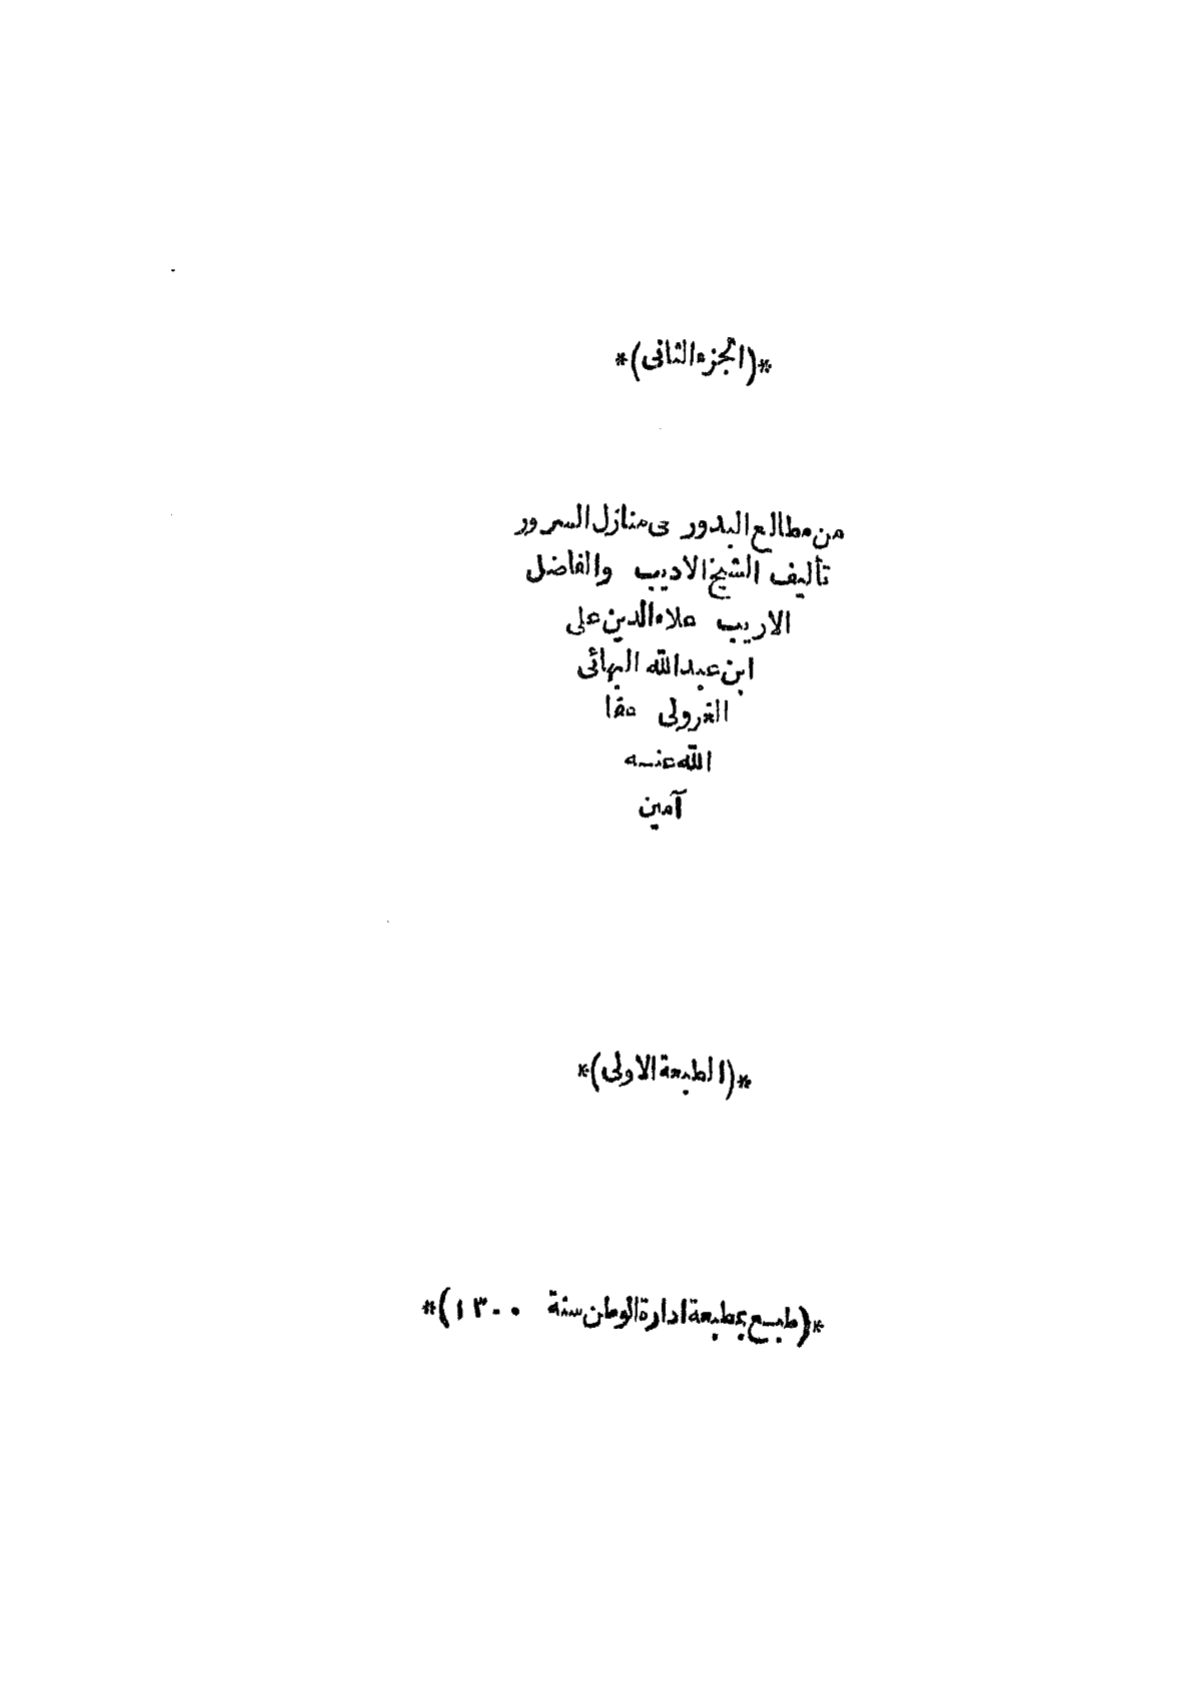 *(الجزء الثانى)*
من مطالع البدور فى منازل السرور
تأليف الشيخ الاديب والفاضل
الاريب علاء الدين على
ابن عبد الله البهائى
الغزولى عفا
الله عنه
آمين
*(الطبعة الاولى)*
*(طبع بمطبعة ادارة الوطن سنة ١٣٠٠)*